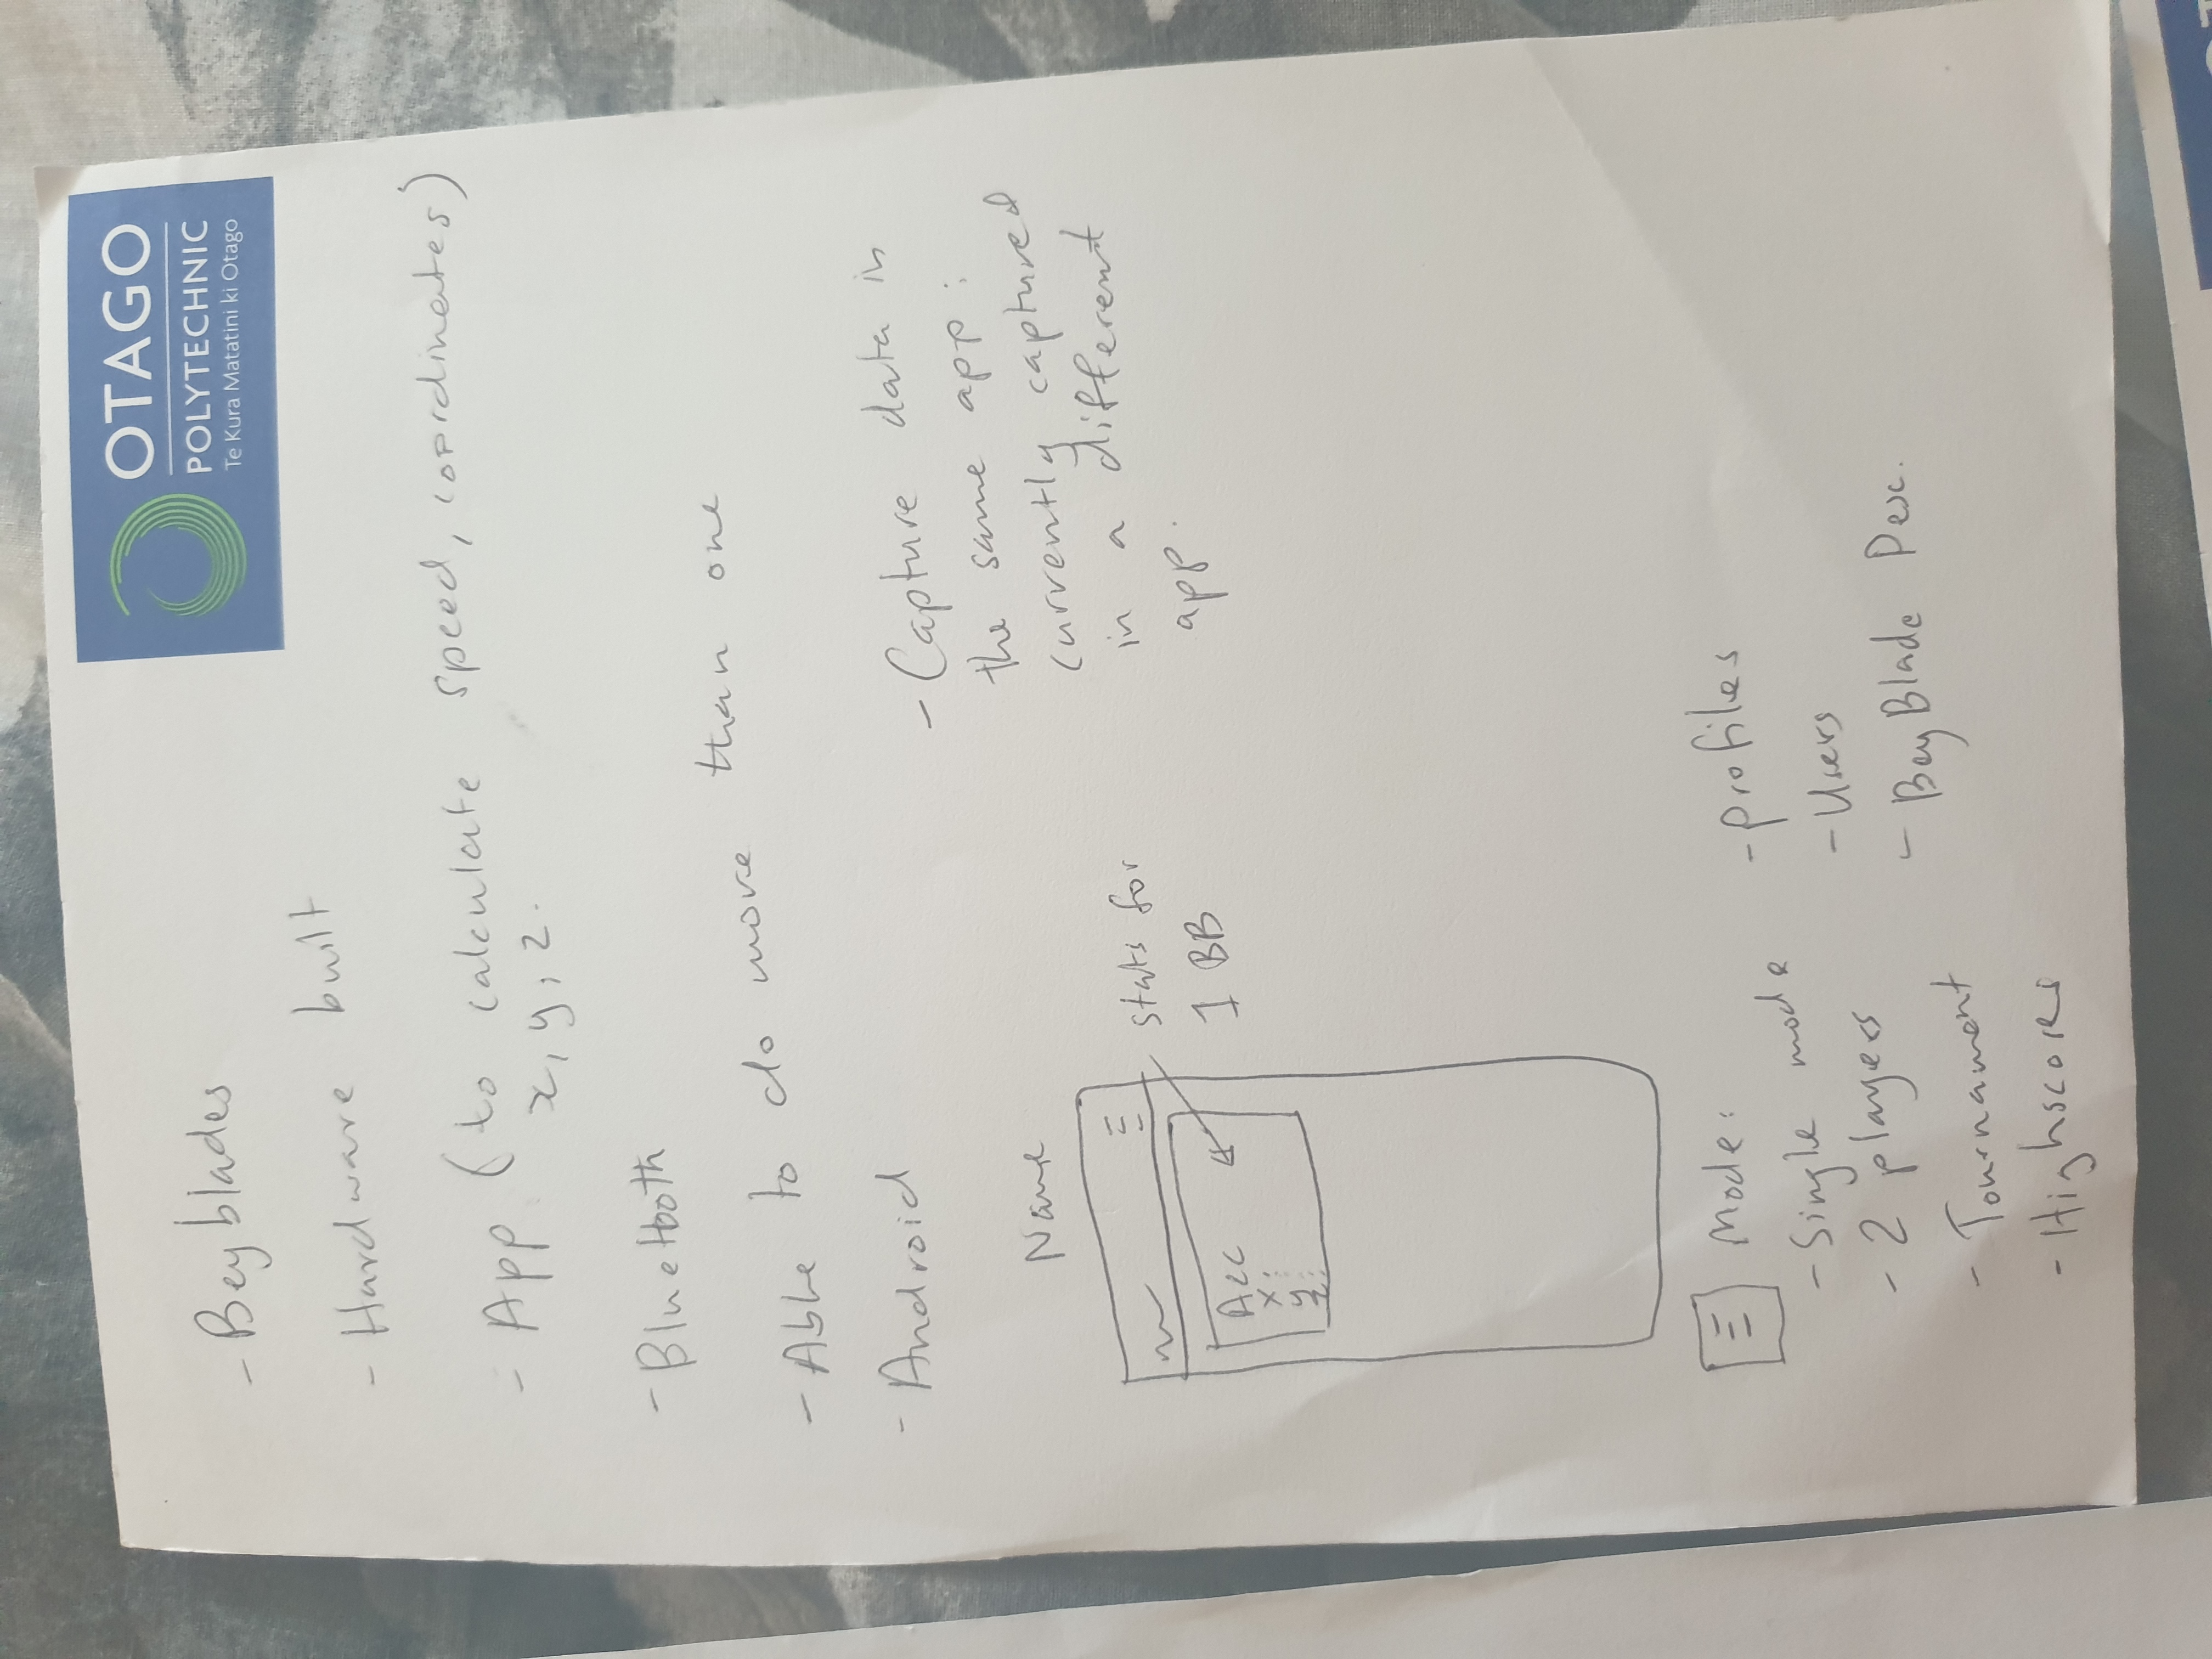 OTAGO
POLYTECHNIC
Te Kura Matatini ki Otago
- Beyblades
- Hardware built
- App (to calculate speed, coordinates)
x, y, z.
- Bluetooth
- Able to do more than one
- Android
- Capture data in
the same app;
currently captured
in a different
app.
Name
stats for
1 BB
Acc
x:
y:
z:
Mode:
- Single mode
- 2 players
- Tournament
- Highscores
- profiles
- Users
- BeyBlade Desc.